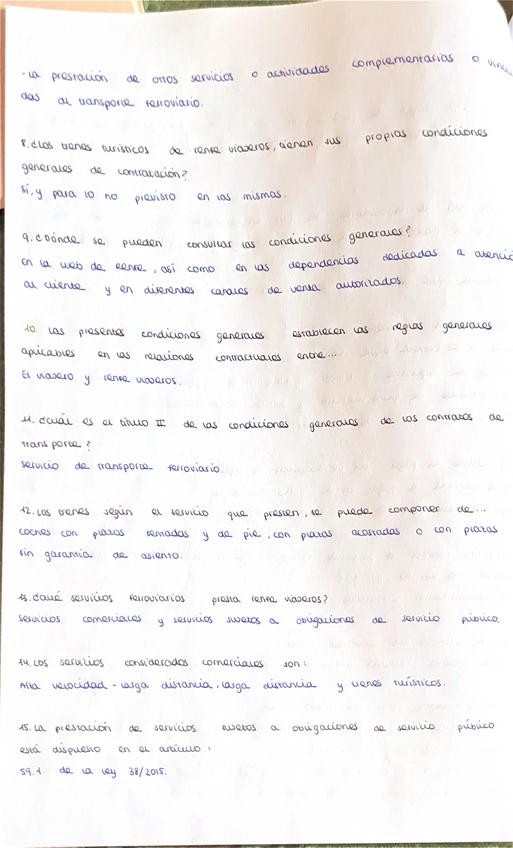 - La prestación de otros servicios o actividades complementarias o vincu
das al transporte ferroviario.
8. ¿Los trenes turísticos de renfe viajeros, tienen sus propias condiciones
generales de contratación?
Sí, y para lo no previsto en las mismas.
9. ¿Dónde se pueden consultar las condiciones generales?
En la web de Renfe, así como en las dependencias dedicadas a atenció
al cliente y en diferentes canales de venta autorizados.
10. Las presentes condiciones generales establecen las reglas generales
aplicables en las relaciones contractuales entre...
El viajero y renfe viajeros.
11. ¿Cuál es el título II de las condiciones generales de los contratos de
transporte?
Servicio de transporte ferroviario.
12. Los trenes según el servicio que presten, se puede componer de...
coches con plazas sentadas y de pie, con plazas acostadas o con plazas
sin garantía de asiento.
13. ¿Qué servicios ferroviarios presta renfe viajeros?
Servicios comerciales y servicios sujetos a obligaciones de servicio público.
14. Los servicios considerados comerciales son:
Alta velocidad - larga distancia, larga distancia y trenes turísticos.
15. La prestación de servicios sujetos a obligaciones de servicio público
está dispuesto en el artículo:
59.1 de la ley 38/2015.